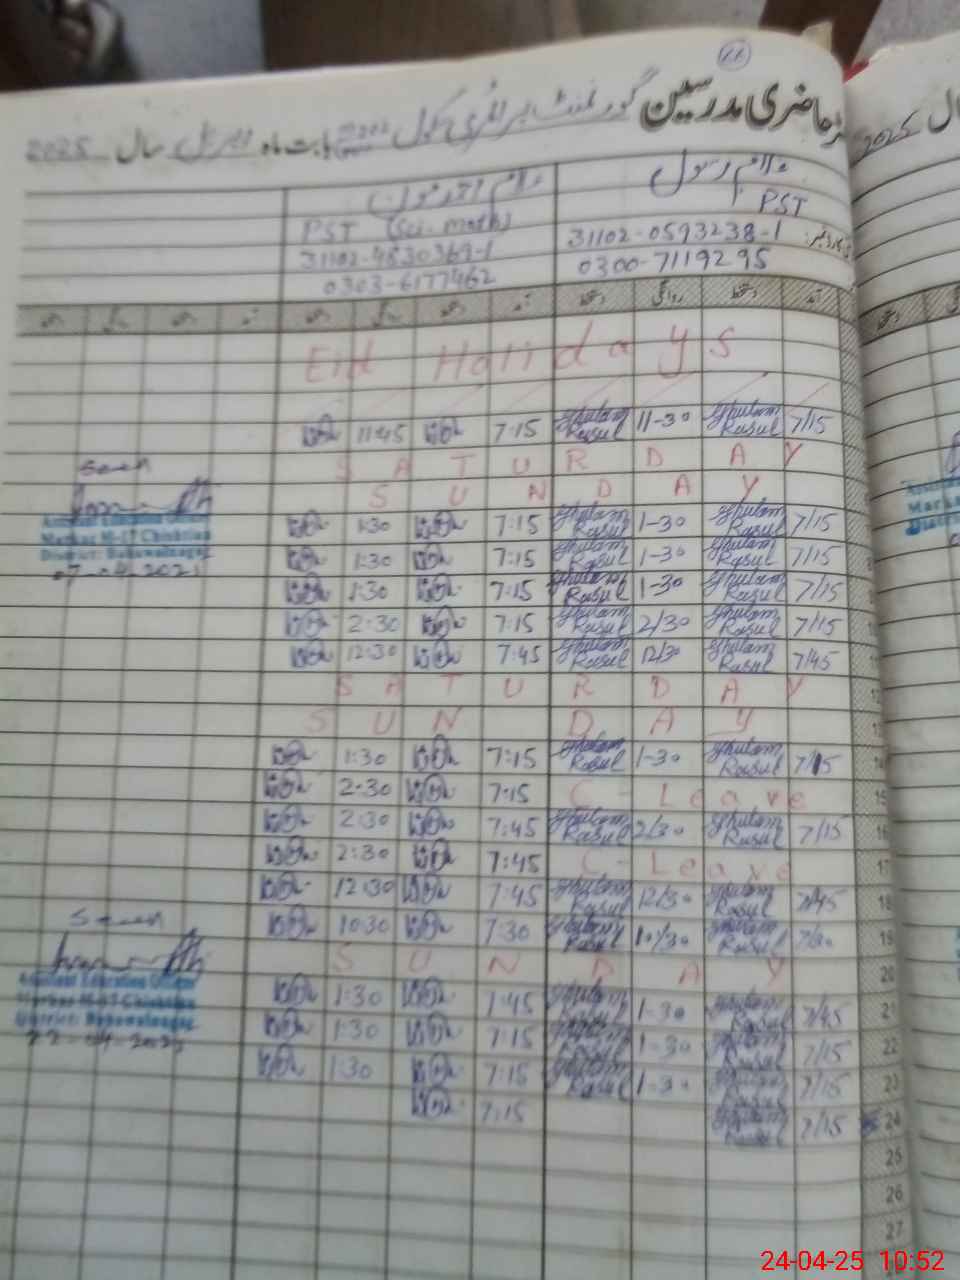 22
حاضری مدرسین گورنمنٹ پرائمری سکول بابت ماہ اپریل سال 2025
غلام رسول
PST PST (Sci-math)
31102-0593238-1 31102-4830369-1
0300-7119295 0303-6177462
آمد دستخط روانگی دستخط آمد دستخط روانگی دستخط آمد دستخط روانگی دستخط
Eid Holidays
7/15 Ghulam Rasul 11-30 Ghulam Rasul 7:15 11:45
SATURDAY
Seen
SUNDAY
7/15 Ghulam Rasul 1-30 Ghulam Rasul 7:15 1:30
Assistant Education Officer
Markaz M-17 Chishtian
District: Bahawalnagar
7/15 Ghulam Rasul 1-30 Ghulam Rasul 7:15 1:30
7/15 Ghulam Rasul 1-30 Ghulam Rasul 7:15 1:30
7/15 Ghulam Rasul 2/30 Ghulam Rasul 7:15 2:30
7/45 Ghulam Rasul 12/30 Ghulam Rasul 7:45 12:30
SATURDAY
SUNDAY
7/15 Ghulam Rasul 1-30 Ghulam Rasul 7:15 1:30
C-Leave 7:15 2:30
16 7/15 Ghulam Rasul 2/30 Ghulam Rasul 7:45 2:30
17 C-Leave 7:45 2:30
18 7/45 Ghulam Rasul 12/30 Ghulam Rasul 7:45 12:30
19 7/30 Ghulam Rasul 10/30 Ghulam Rasul 7:30 10:30
Seen
20 SUNDAY
Assistant Education Officer
Markaz M-17 Chishtian
District: Bahawalnagar
22-04-2025
21 7/45 Ghulam Rasul 1-30 Ghulam Rasul 7:45 1:30
22 7/15 Ghulam Rasul 1-30 Ghulam Rasul 7:15 1:30
23 7/15 Ghulam Rasul 1-30 Ghulam Rasul 7:15 1:30
24 7/15 Ghulam Rasul 7:15
25
26
27
2025 سال
24-04-25 10:52